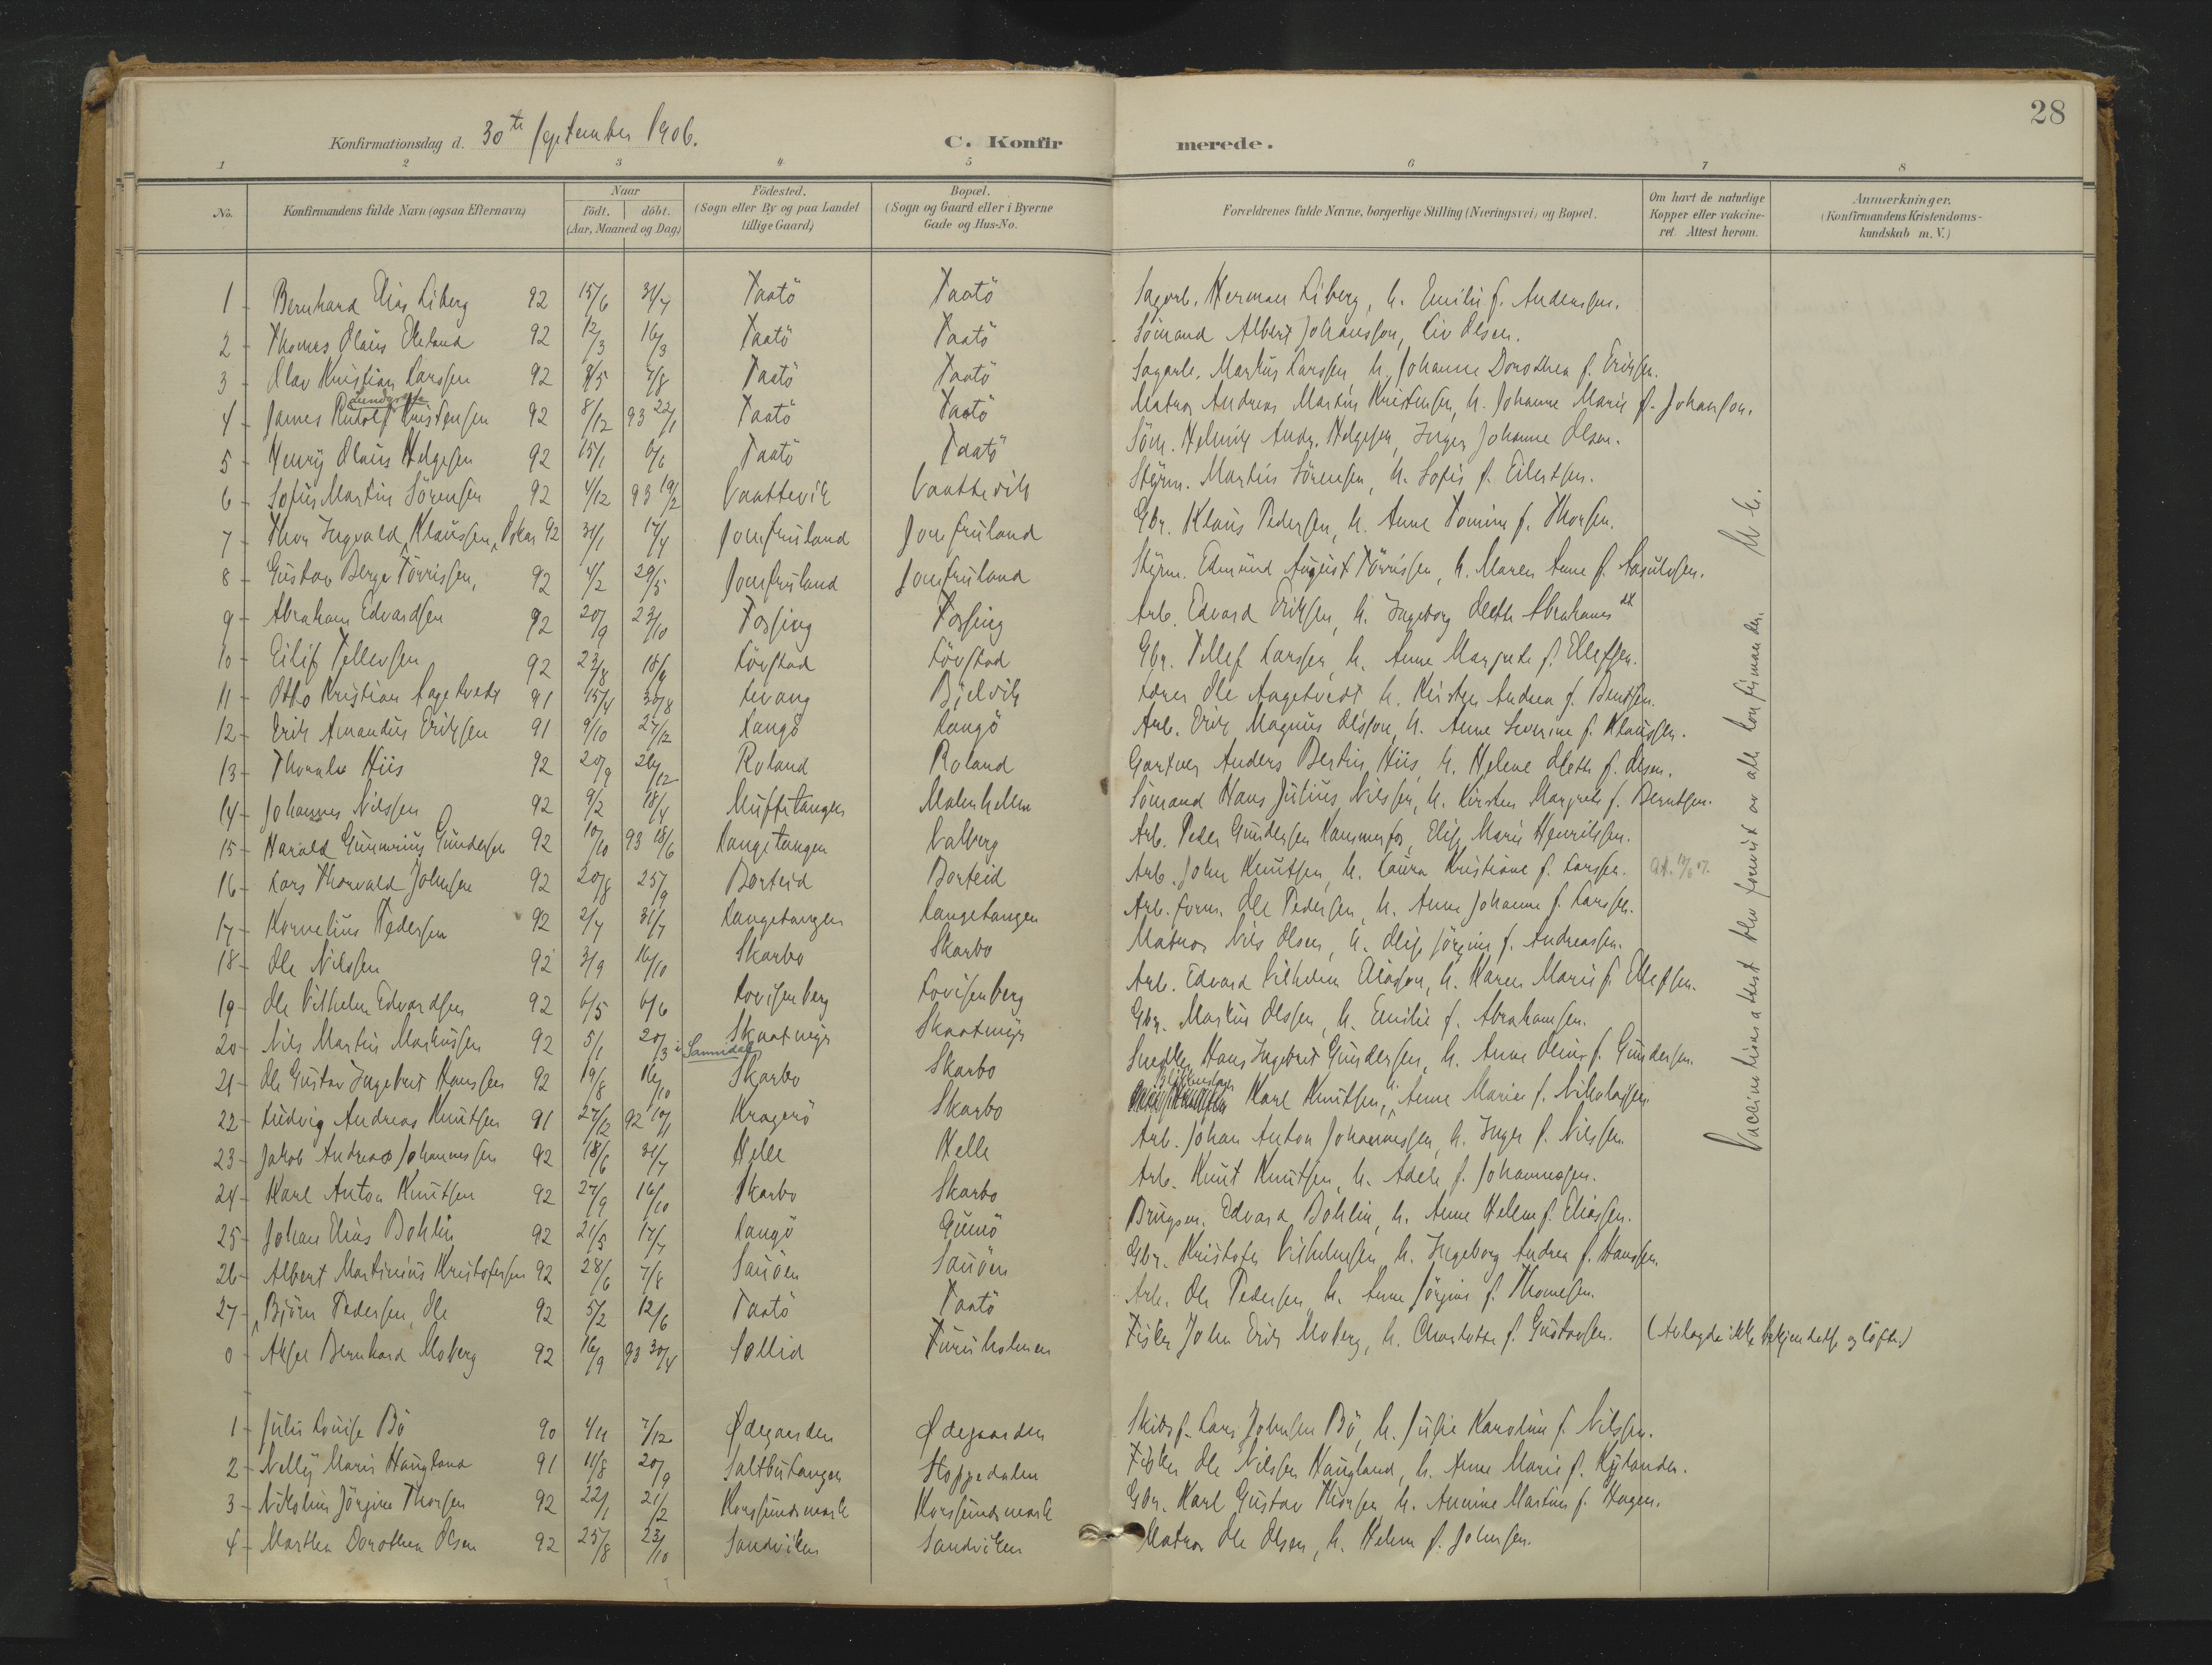 28
Konfirmationsdag d. 30te September 1906.
C. Konfirmerede.
1 2 3 4 5 6 7 8
No. Konfirmandens fulde Navn (ogsaa Efternavn) Naar födt. döbt. (Aar, Maaned og Dag) Födested. (Sogn eller By og paa Landet tillige Gaard) Bopæl. (Sogn og Gaard eller i Byerne Gade og Hus-No. Forældrenes fulde Navne, borgerlige Stilling (Næringsvei) og Bopæl. Om havt de naturlige Kopper eller vakcineret. Attest herom. Anmærkninger. (Konfirmandens Kristendomskundskab m. V.)
1 - Bernhard Elias Liberg 92 15/6 31/7 Taatö Taatö Sagarb. Herman Liberg, h. Emilie f. Andersen.
2 - Thomas Olaus Ekeland 92 12/3 16/3 Taatö Taatö Sömand Albert Johansson, Liv Olsen.
3 - Olav Kristian Larssen 92 8/5 7/8 Taatö Taatö Sagarb. Markus Larssen, h. Johanne Dorothea f. Eriksen.
4 - James Rudolf Kristensen 92 8/12 93 22/1 Taatö Taatö Matros Andreas Martin Kristensen, h. Johanne Marie f. Johanson.
5 - Henry Olaus Helgesen 92 15/1 6/6 Taatö Taatö Söm. Helmik Andr. Helgesen, Inger Johanne Olsen.
6 - Sofus Martin Sörensen 92 4/12 93 19/2 Vaattevik Vaattevik Styrm. Martin Sörensen, h. Sofie f. Eilertsen.
7 - Thor Ingvald Klaussen, Oskar 92 31/1 17/4 Jomfruland Jomfruland Gbr. Klaus Pedersen, h. Anne Tomine f. Thorsen.
8 - Gustav Berge Törrissen, 92 4/2 29/5 Jomfruland Jomfruland Styrm. Edmund August Törrissen, h. Maren Anne f. Aasulvsen.
9 - Abraham Edvardsen 92 20/9 23/10 Fossing Fossing Arb. Edvard Eriksen, h. Ingeborg Olette Abrahamsdt
10 - Eilif Tellevsen 92 23/8 18/9 Lövstad Lövstad Gbr. Tellef Larssen, h. Anne Margrete f. Ellefsen.
11 - Otto Kristian Aagetvedt 91 15/4 30/8 Levang Bjelvik Ole Aagetvedt, h. Kirsten Andrea f. Bentsen.
12 - Erik Amandus Eriksen 91 9/10 27/12 Langö Langö Arb. Erik Magnus Olsson, h. Anne Severine f. Klaussen.
13 - Thorolv Hiis 92 20/9 26/12 Roland Roland Gartner Anders Bertin Hiis, h. Helene Olette f. Olsen.
14 - Johannes Nilssen 92 9/2 18/4 Muffetangen Malmhellen Sömand Hans Julius Nilssen, h. Kirsten Margrete f. Berntsen.
15 - Harald Gunnerius Gundersen 92 10/10 93 18/6 Langetangen Valberg Arb. Peder Gundersen Hammerfos, Elise Marie Henriksen.
16 - Lars Thorvald Johnsen 92 20/8 25/9 Borteid Borteid Arb. John Knutsen, h. Laura Kristiane f. Larssen.
17 - Kornelius Pedersen 92 2/7 31/7 Langetangen Langetangen Arb. form. Ole Pedersen, h. Anne Johanne f. Larssen.
18 - Ole Nilssen 92 3/9 16/10 Skarbo Skarbo Matros Nils Olsen, h. Elise Jörgine f. Andreassen.
19 - Ole Vilhelm Edvardsen 92 6/5 6/6 Lovisenberg Lovisenberg Arb. Edvard Vilhelm Eliassen, h. Karen Marie f. Ellefsen.
20 - Nils Martin Markussen 92 5/1 20/3 i Sannidal Skaatmyr Skaatmyr Gbr. Markus Olssen, h. Emilie f. Abrahamsen.
21 - Ole Gustav Ingebret Hanssen 92 19/8 16/10 Skarbo Skarbo Snedker Hans Ingebret Gundersen, h. Anne Oline f. Gundersen.
22 - Ludvig Andreas Knutsen 91 27/12 92 10/11 Kragerö Skarbo Karl Knutsen, h. Anne Marie f. Nikolaisen
23 - Jakob Andreas Johannessen 92 18/6 31/7 Helle Helle Arb. Johan Anton Johannessen, h. Inger f. Nilssen.
24 - Karl Anton Knutsen 92 27/9 16/10 Skarbo Skarbo Arb. Knut Knutsen, h. Adele f. Johannessen.
25 - Johan Elias Bohlin 92 21/5 17/7 Langö Gumö Brugsm. Edvard Bohlin, h. Anne Helene f. Eliassen.
26 - Albert Martinius Kristofersen 92 28/6 7/8 Sauöen Sauöen Gbr. Kristofer Vilhelmsen, h. Ingeborg Andrea f. Hanssen.
27 - Björn Pedersen, Ole 92 5/2 12/6 Taatö Taatö Arb. Ole Pedersen, h. Anne Jörgine f. Thomesen.
0 - Aksel Bernhard Moberg 92 16/9 93 30/4 Sollid Furuholmen Fisker John Erik Moberg, h. Charlotte f. Gustavsen. (Avlagde ikke bekjendelse og löfte)
Vaccinationsattest blev forevist av alle konfirmander.
1 - Julie Louise Bö 90 4/11 7/12 Ødegaarden Ødegaarden Skibsf. Lars Johnsen Bö, h. Julie Karoline f. Nilssen.
2 - Nelly Marie Haugland 91 11/8 20/9 Saltbutangen Stoppedalen Fisker Ole Nilssen Haugland, h. Anne Marie f. Kylander.
3 - Nikoline Jörgine Thorsen 92 22/1 21/2 Korssundsmark Korssundsmark Gbr. Karl Gustav Thorsen h. Annine Martine f. Hagen.
4 - Marthea Dorothea Olsen 92 25/8 23/10 Sandviken Sandviken Matros Ole Olsen, h. Helene f. Johnsen.